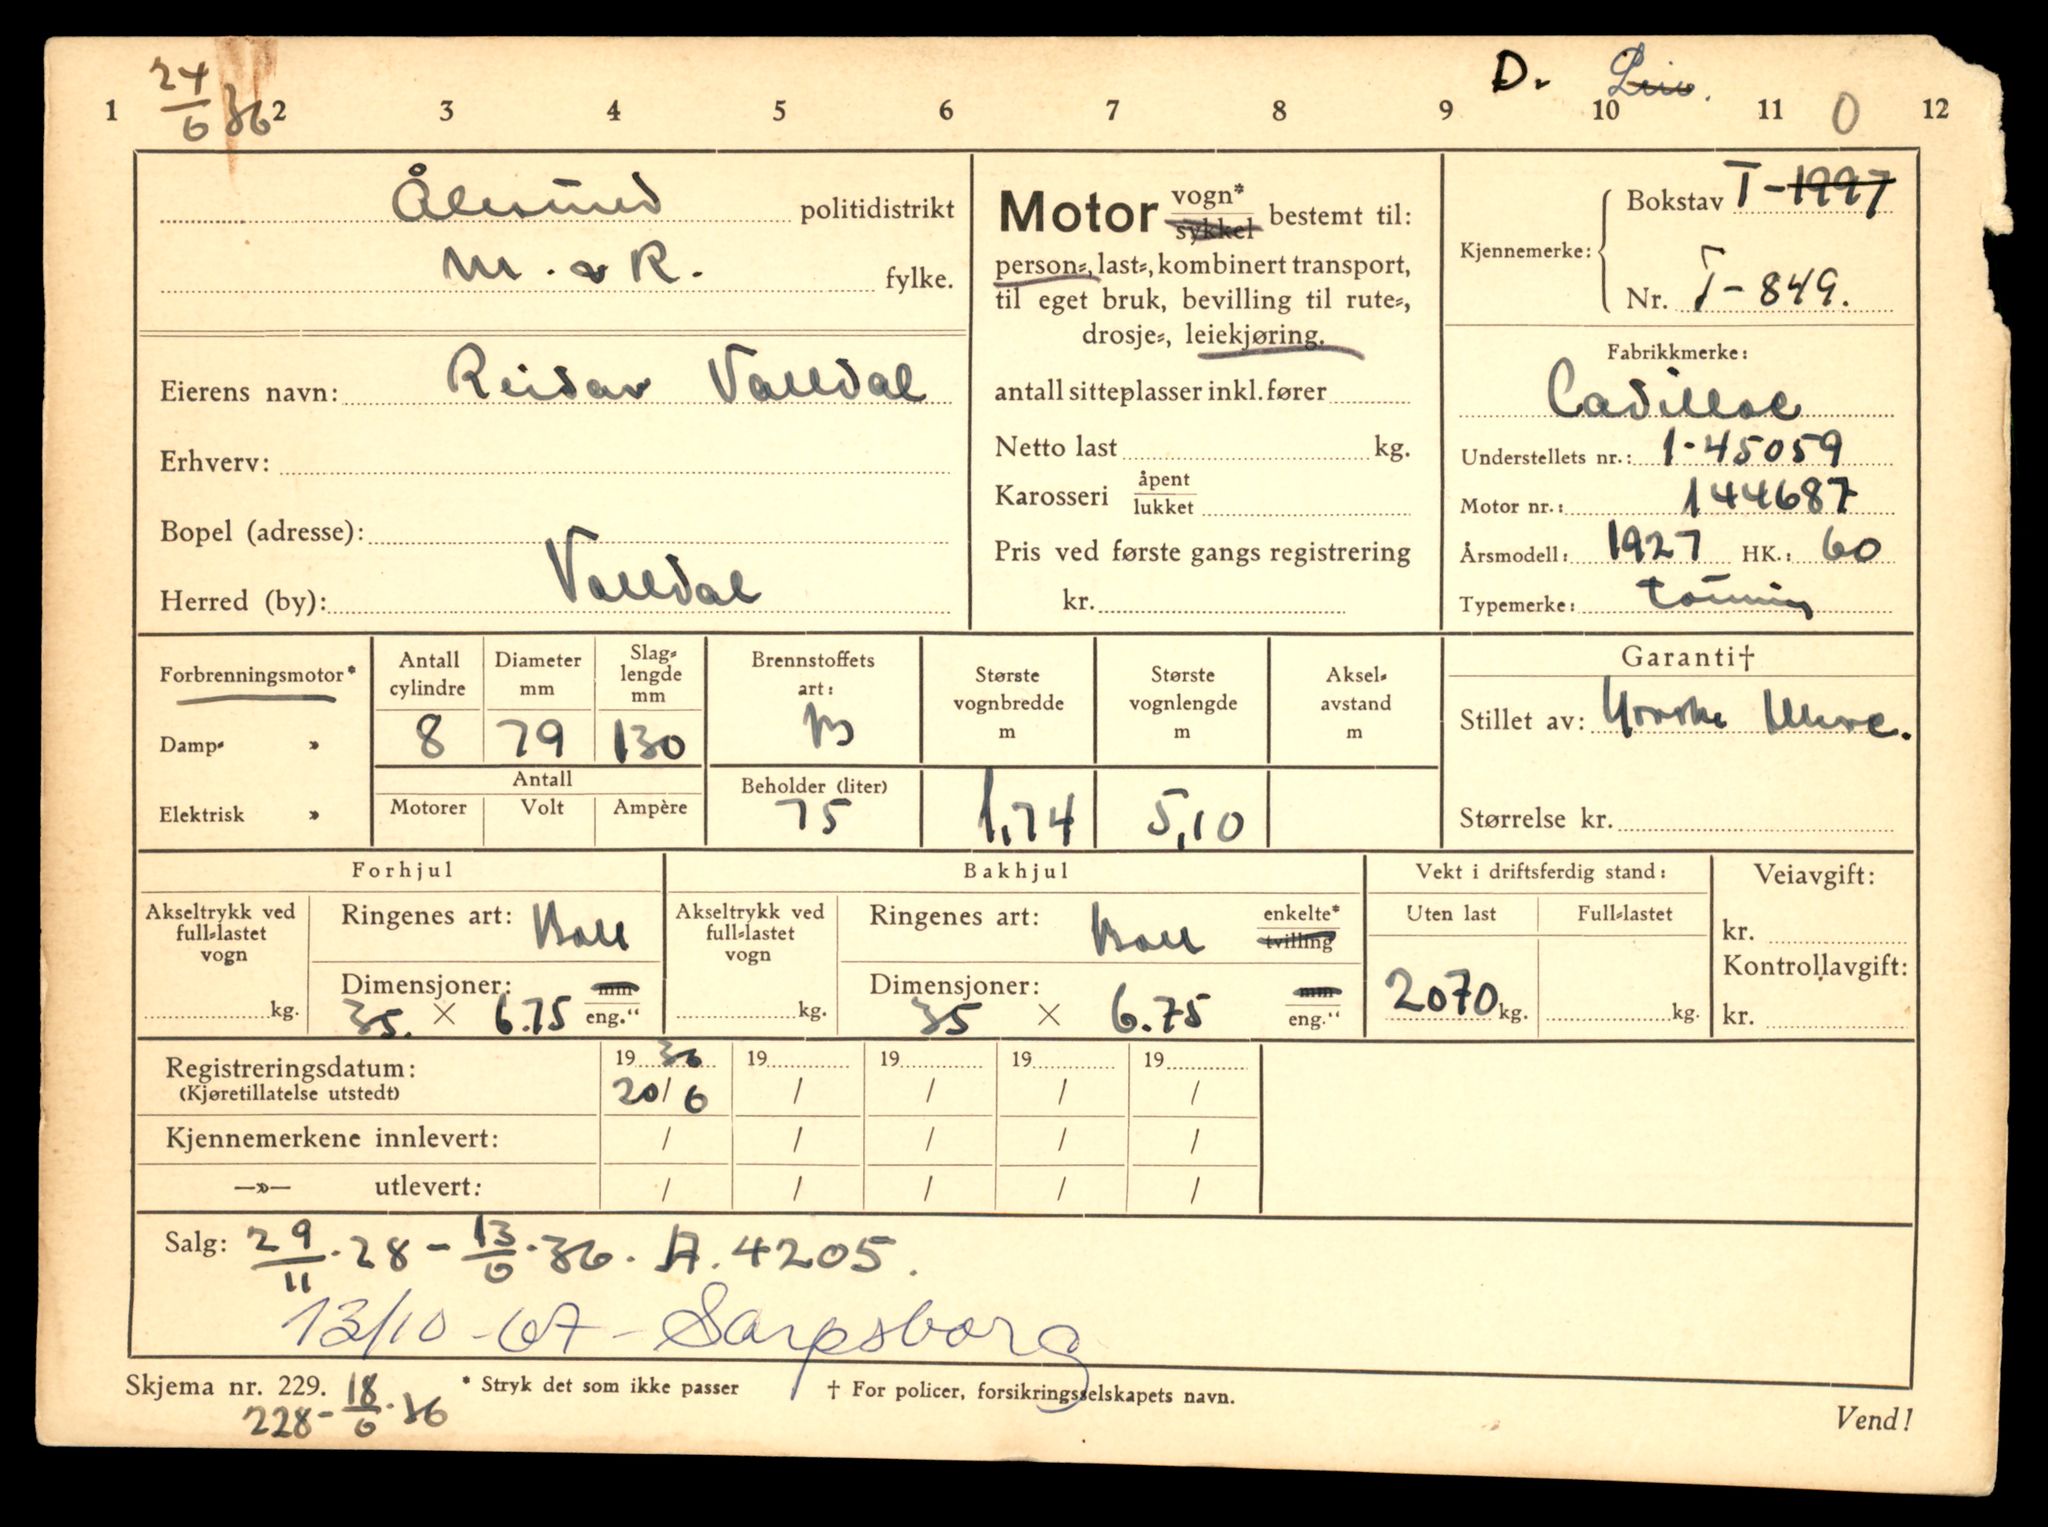 24/6 36
D. Leie.
1 2 3 4 5 6 7 8 9 10 11 0 12
Ålesund politidistrikt
M. & R. fylke.
Eierens navn: Reidar Valldal
Erhverv:
Bopel (adresse):
Herred (by): Valldal
Motor vogn* sykkel bestemt til:
person-, last-, kombinert transport,
til eget bruk, bevilling til rute-,
drosje-, leiekjøring.
antall sitteplasser inkl. fører
Netto last kg.
Karosseri åpent lukket
Pris ved første gangs registrering
kr.
Kjennemerke: Bokstav T-1997
Nr. T-849.
Fabrikkmerke:
Cadillac
Understellets nr.: 1-45059
Motor nr.: 144687
Årsmodell: 1927 HK.: 60
Typemerke: touring
Forbrenningsmotor*
Damp- »
Elektrisk »
Antall cylindre Diameter mm Slaglengde mm
8 79 130
Antall
Motorer Volt Ampère
Brennstoffets art:
B
Beholder (liter)
75
Største vognbredde m
1,74
Største vognlengde m
5,10
Akselavstand m
Garanti†
Stillet av: Norske
Størrelse kr.
Forhjul
Akseltrykk ved full-lastet vogn
kg.
Ringenes art: Ball
Dimensjoner: mm
35. × 6.75 eng."
Bakhjul
Akseltrykk ved full-lastet vogn
kg.
Ringenes art: Ball enkelte* tvilling
Dimensjoner: mm
35 × 6.75 eng."
Vekt i driftsferdig stand:
Uten last Full-lastet
2070 kg. kg.
Veiavgift:
kr.
Kontrollavgift:
kr.
Registreringsdatum: 19 36 19 19 19 19
(Kjøretillatelse utstedt) 20/6 / / / /
Kjennemerkene innlevert: / / / / /
—»— utlevert: / / / / /
Salg: 29/11.28 - 13/6.36. A. 4205.
13/10-67 - Sarpsborg
Skjema nr. 229. * Stryk det som ikke passer † For policer, forsikringsselskapets navn.
228-18/6.36
Vend!